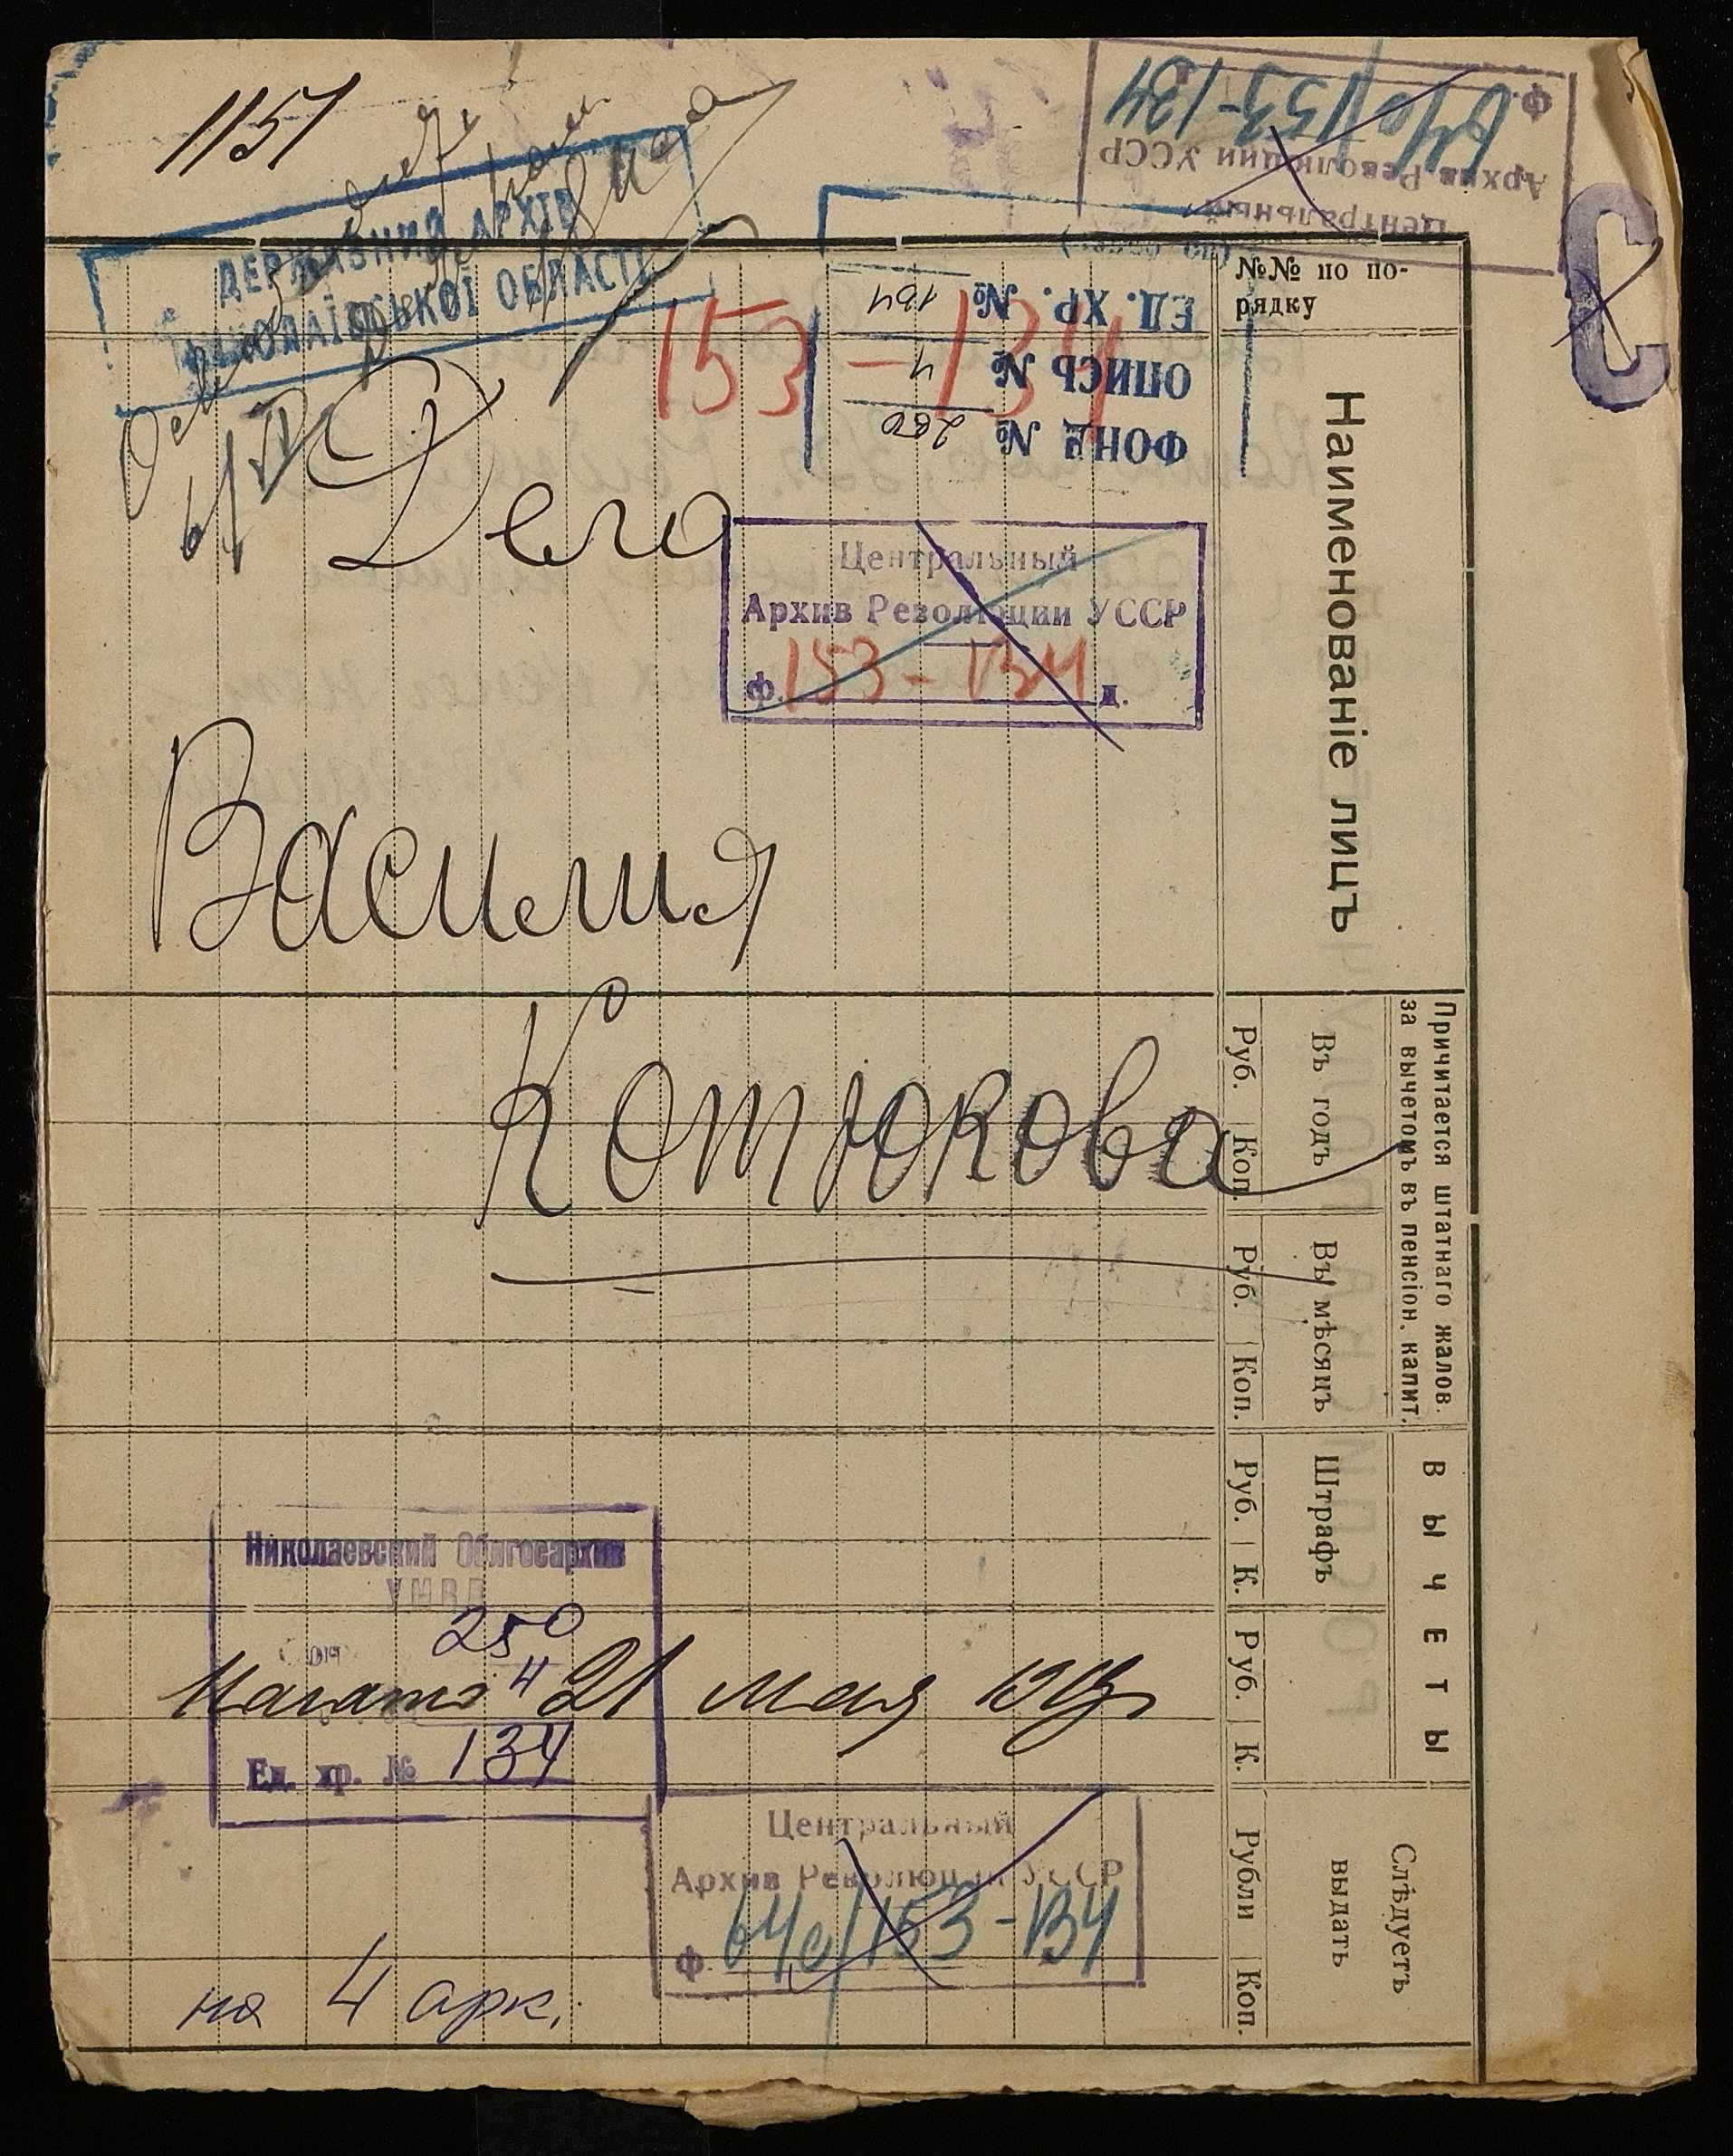 1151
Центральный
Архив Революции УССР
ф. 64с/153-134
С
ДЕРЖАВНИЙ АРХІВ
МИКОЛАЇВСЬКОЇ ОБЛАСТІ
153-134
ФОНД № 250
ОПИСЬ № 4
ЕД. ХР. № 134
№№ по по-
рядку
Наименованіе лицъ
Дело
Центральный
Архив Революции УССР
ф. 153-134 д.
Василия
Котюкова
Причитается штатнаго жалов.
за вычетомъ въ пенсіон. капит.
Въ годъ
Руб. Коп.
Въ мѣсяцъ
Руб. Коп.
ВЫЧЕТЫ
Штрафъ
Руб. К.
Руб. К.
Слѣдуетъ
выдать
Рубли Коп.
Николаевский Облгосархив
УНВД
250
4
Ед. хр. № 134
Начато 21 мая
Центральный
Архив Революции УССР
ф 64с/153-134
на 4 арк.